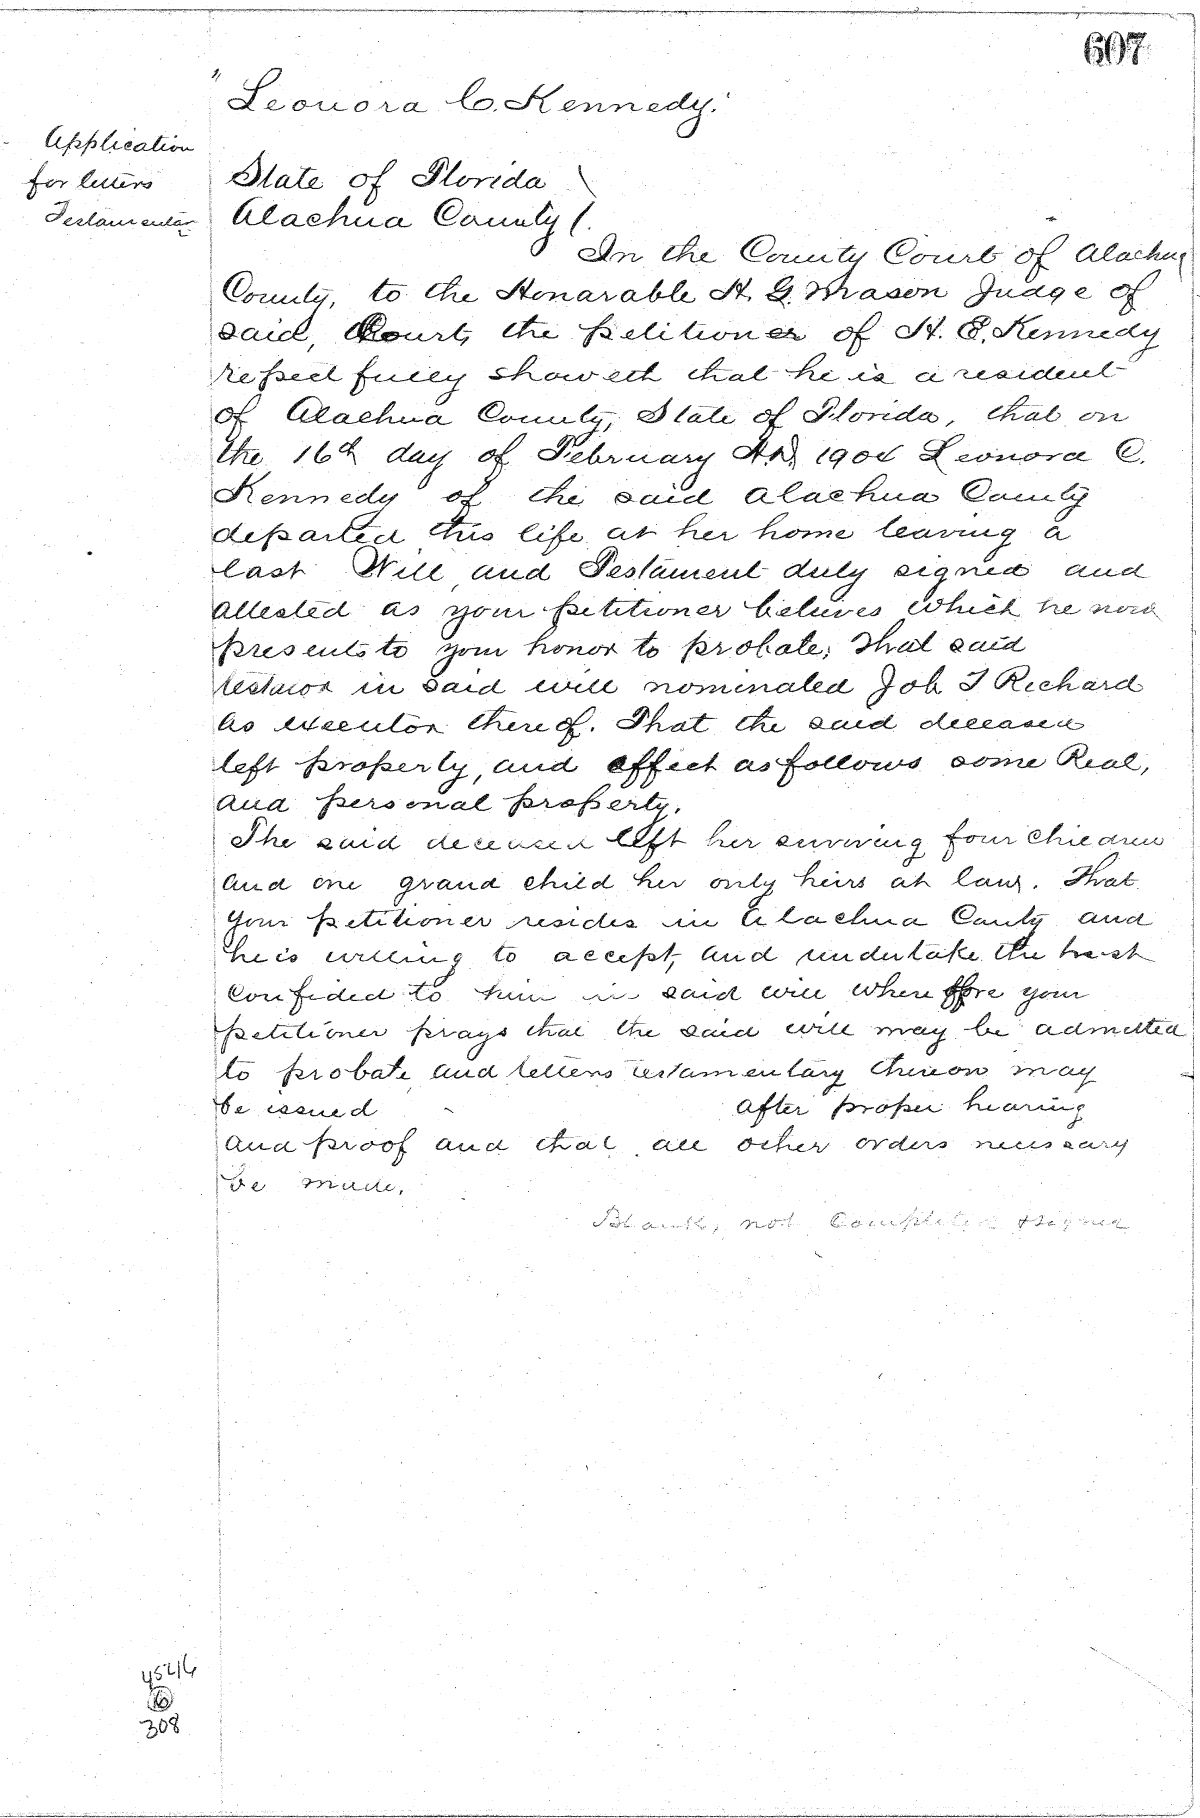 607
"Leonora C. Kennedy."
Application
for letters
Testamentar
State of Florida
Alachua County
In the County Court of Alachua
County, to the Honarable H. G. Mason Judge of
said, Court, the petitioner of H. E. Kennedy
respectfully showeth that he is a resident
of Alachua County, State of Florida, that on
the 16th day of February A.D. 1904 Leonora C.
Kennedy of the said Alachua County
departed this life at her home leaving a
last Will and Testament duly signed and
attested as your petitioner believes which he now
presents to your honor to probate, That said
testator in said will nominated Job T Richard
as executor thereof. That the said deceased
left property, and effect as follows some Real,
and personal property.
The said deceased left her surviving four children
and one grand child her only heirs at law. That
your petitioner resides in Alachua Canty and
he is willing to accept, and undertake the trust
confided to him in said will wherefore your
petitioner prays that the said will may be admitted
to probate and letters testamentary thereon may
be issued after proper hearing
and proof and that all other orders necessary
be made.
Blank, not Completed Signed
308